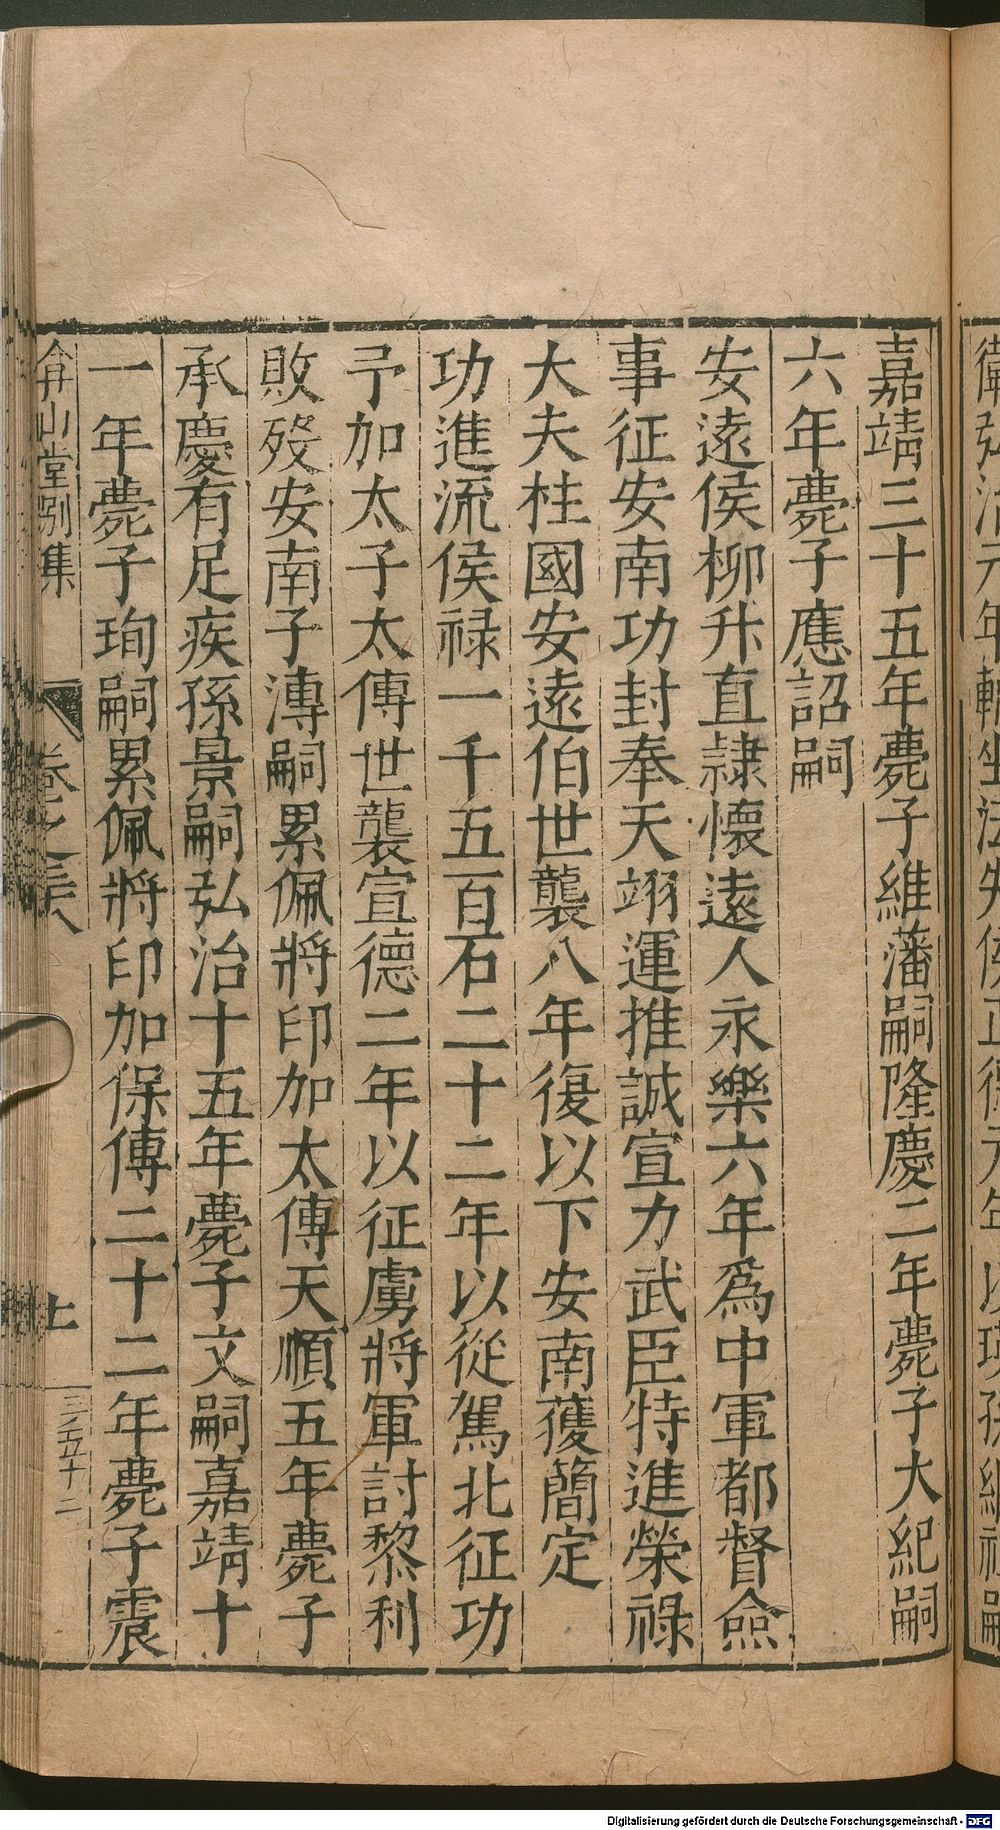 嘉靖三十五年薨子維藩嗣隆慶二年薨子大紀嗣
六年薨子應詔嗣
安遠侯柳升直隷懷遠人永樂六年爲中軍都督僉
事征安南功封奉天翊運推誠宣力武臣特進榮祿
大夫柱國安遠伯世襲八年復以下安南獲簡定
功進流侯祿一千五百石二十二年以從駕北征功
予加太子太傅世襲宣德二年以征虜將軍討黎利
敗歿安南子溥嗣累佩將印加太傅天順五年薨子
承慶有足疾孫景嗣弘治十五年薨子文嗣嘉靖十
一年薨子珣嗣累佩將印加保傅二十二年薨子震
弇山堂別集
卷之三八
上
Digitalisierung gefördert durch die Deutsche Forschungsgemeinschaft - DFG